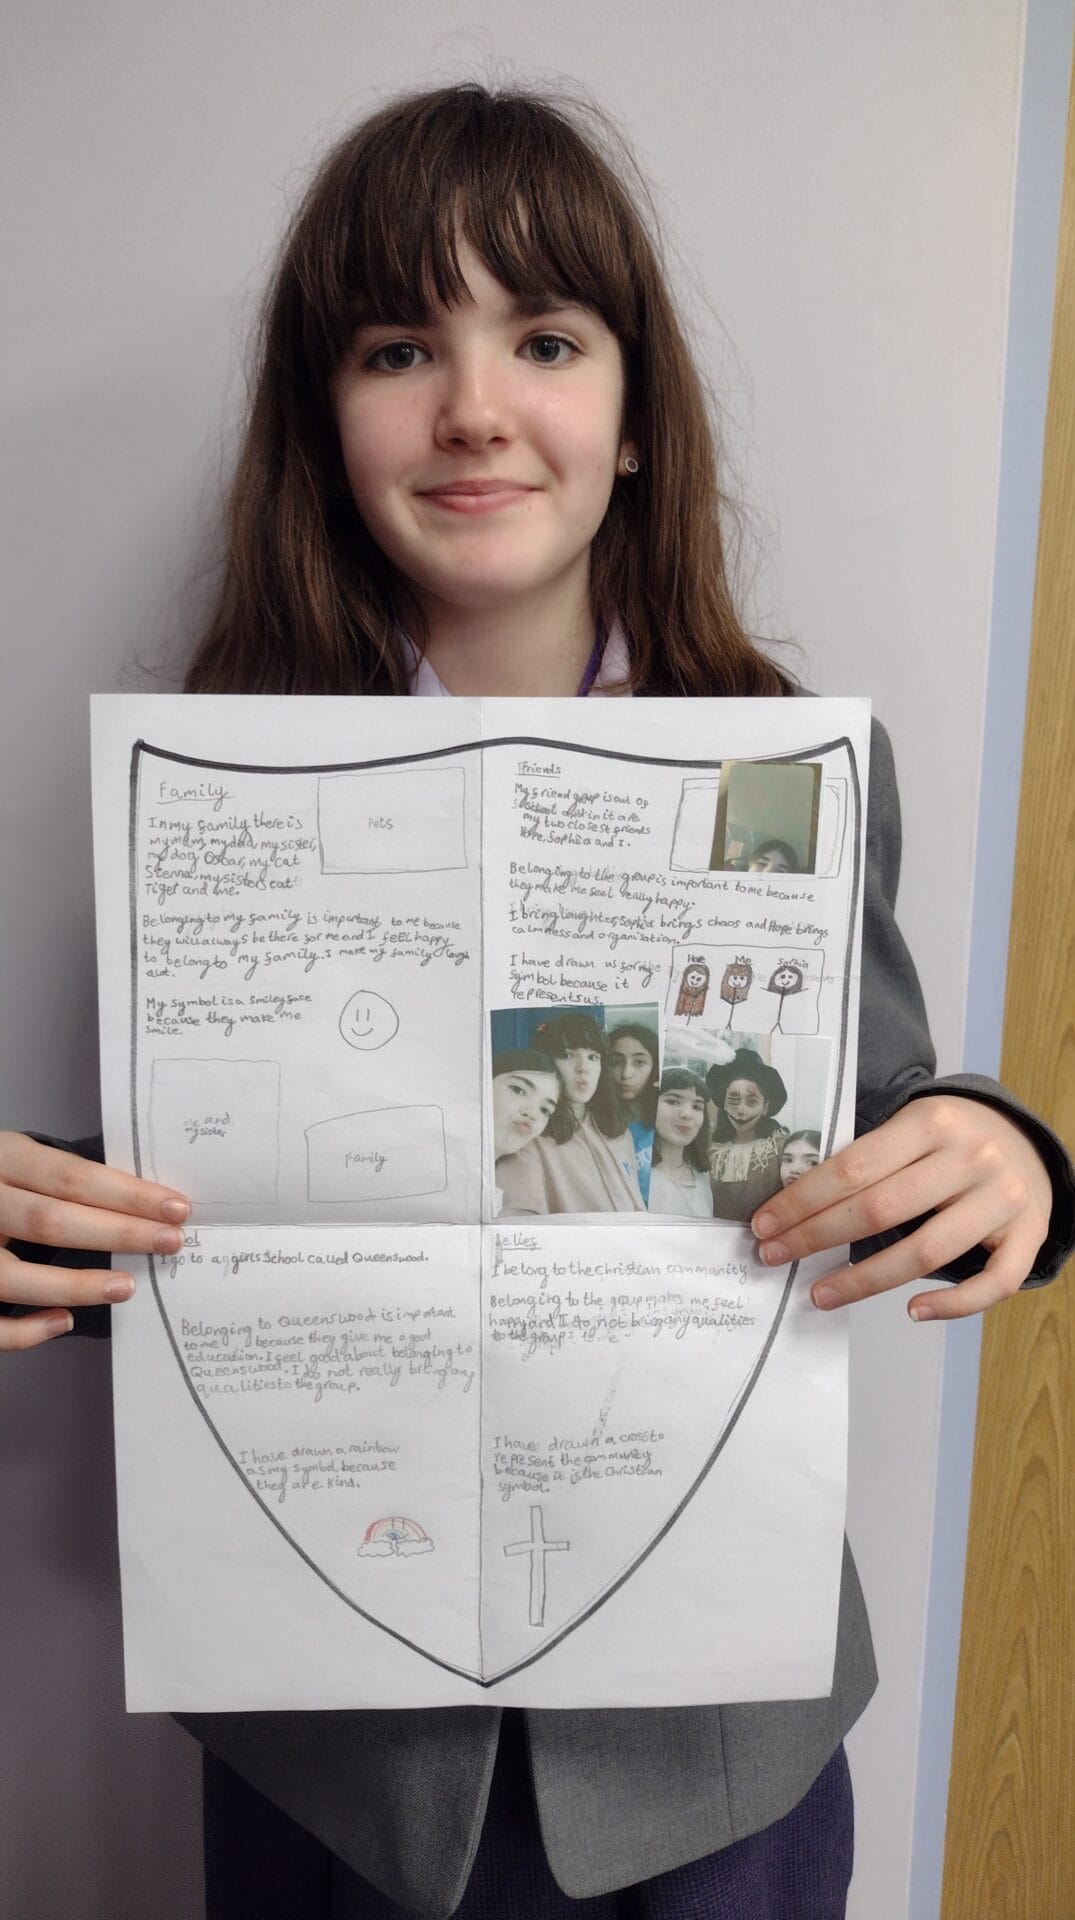 Family
In my family there is
my mum, my dad, my sister,
my dog Oscar, my cat
Sienna, my sisters cat
Tiger and me.
Pets
Belonging to my family is important to me because
they will always be there for me and I feel happy
to belong to my family. I make my family laugh
alot.
My symbol is a smiley face
because they make me
smile.
me and
my sister
Family
Friends
My friend group is out of
school and in it are
my two closest friends
Hope, Sophia and I.
Belonging to the group is important to me because
they make me feel really happy.
I bring laughter, Sophia brings chaos and Hope brings
calmness and organisation.
I have drawn us for my
symbol because it
represents us.
Me
Sophia
ol
I go to a girls school called Queenswood.
Belonging to Queenswood is important
to me because they give me a good
education. I feel good about belonging to
Queenswood. I do not really bring any
qualities to the group.
I have drawn a rainbow
as my symbol because
they are kind.
I belong to the Christian community
Belonging to the group makes me feel
happy and I do not bring any qualities
to the group
I have drawn a cross to
represent the community
because it is the Christian
symbol.